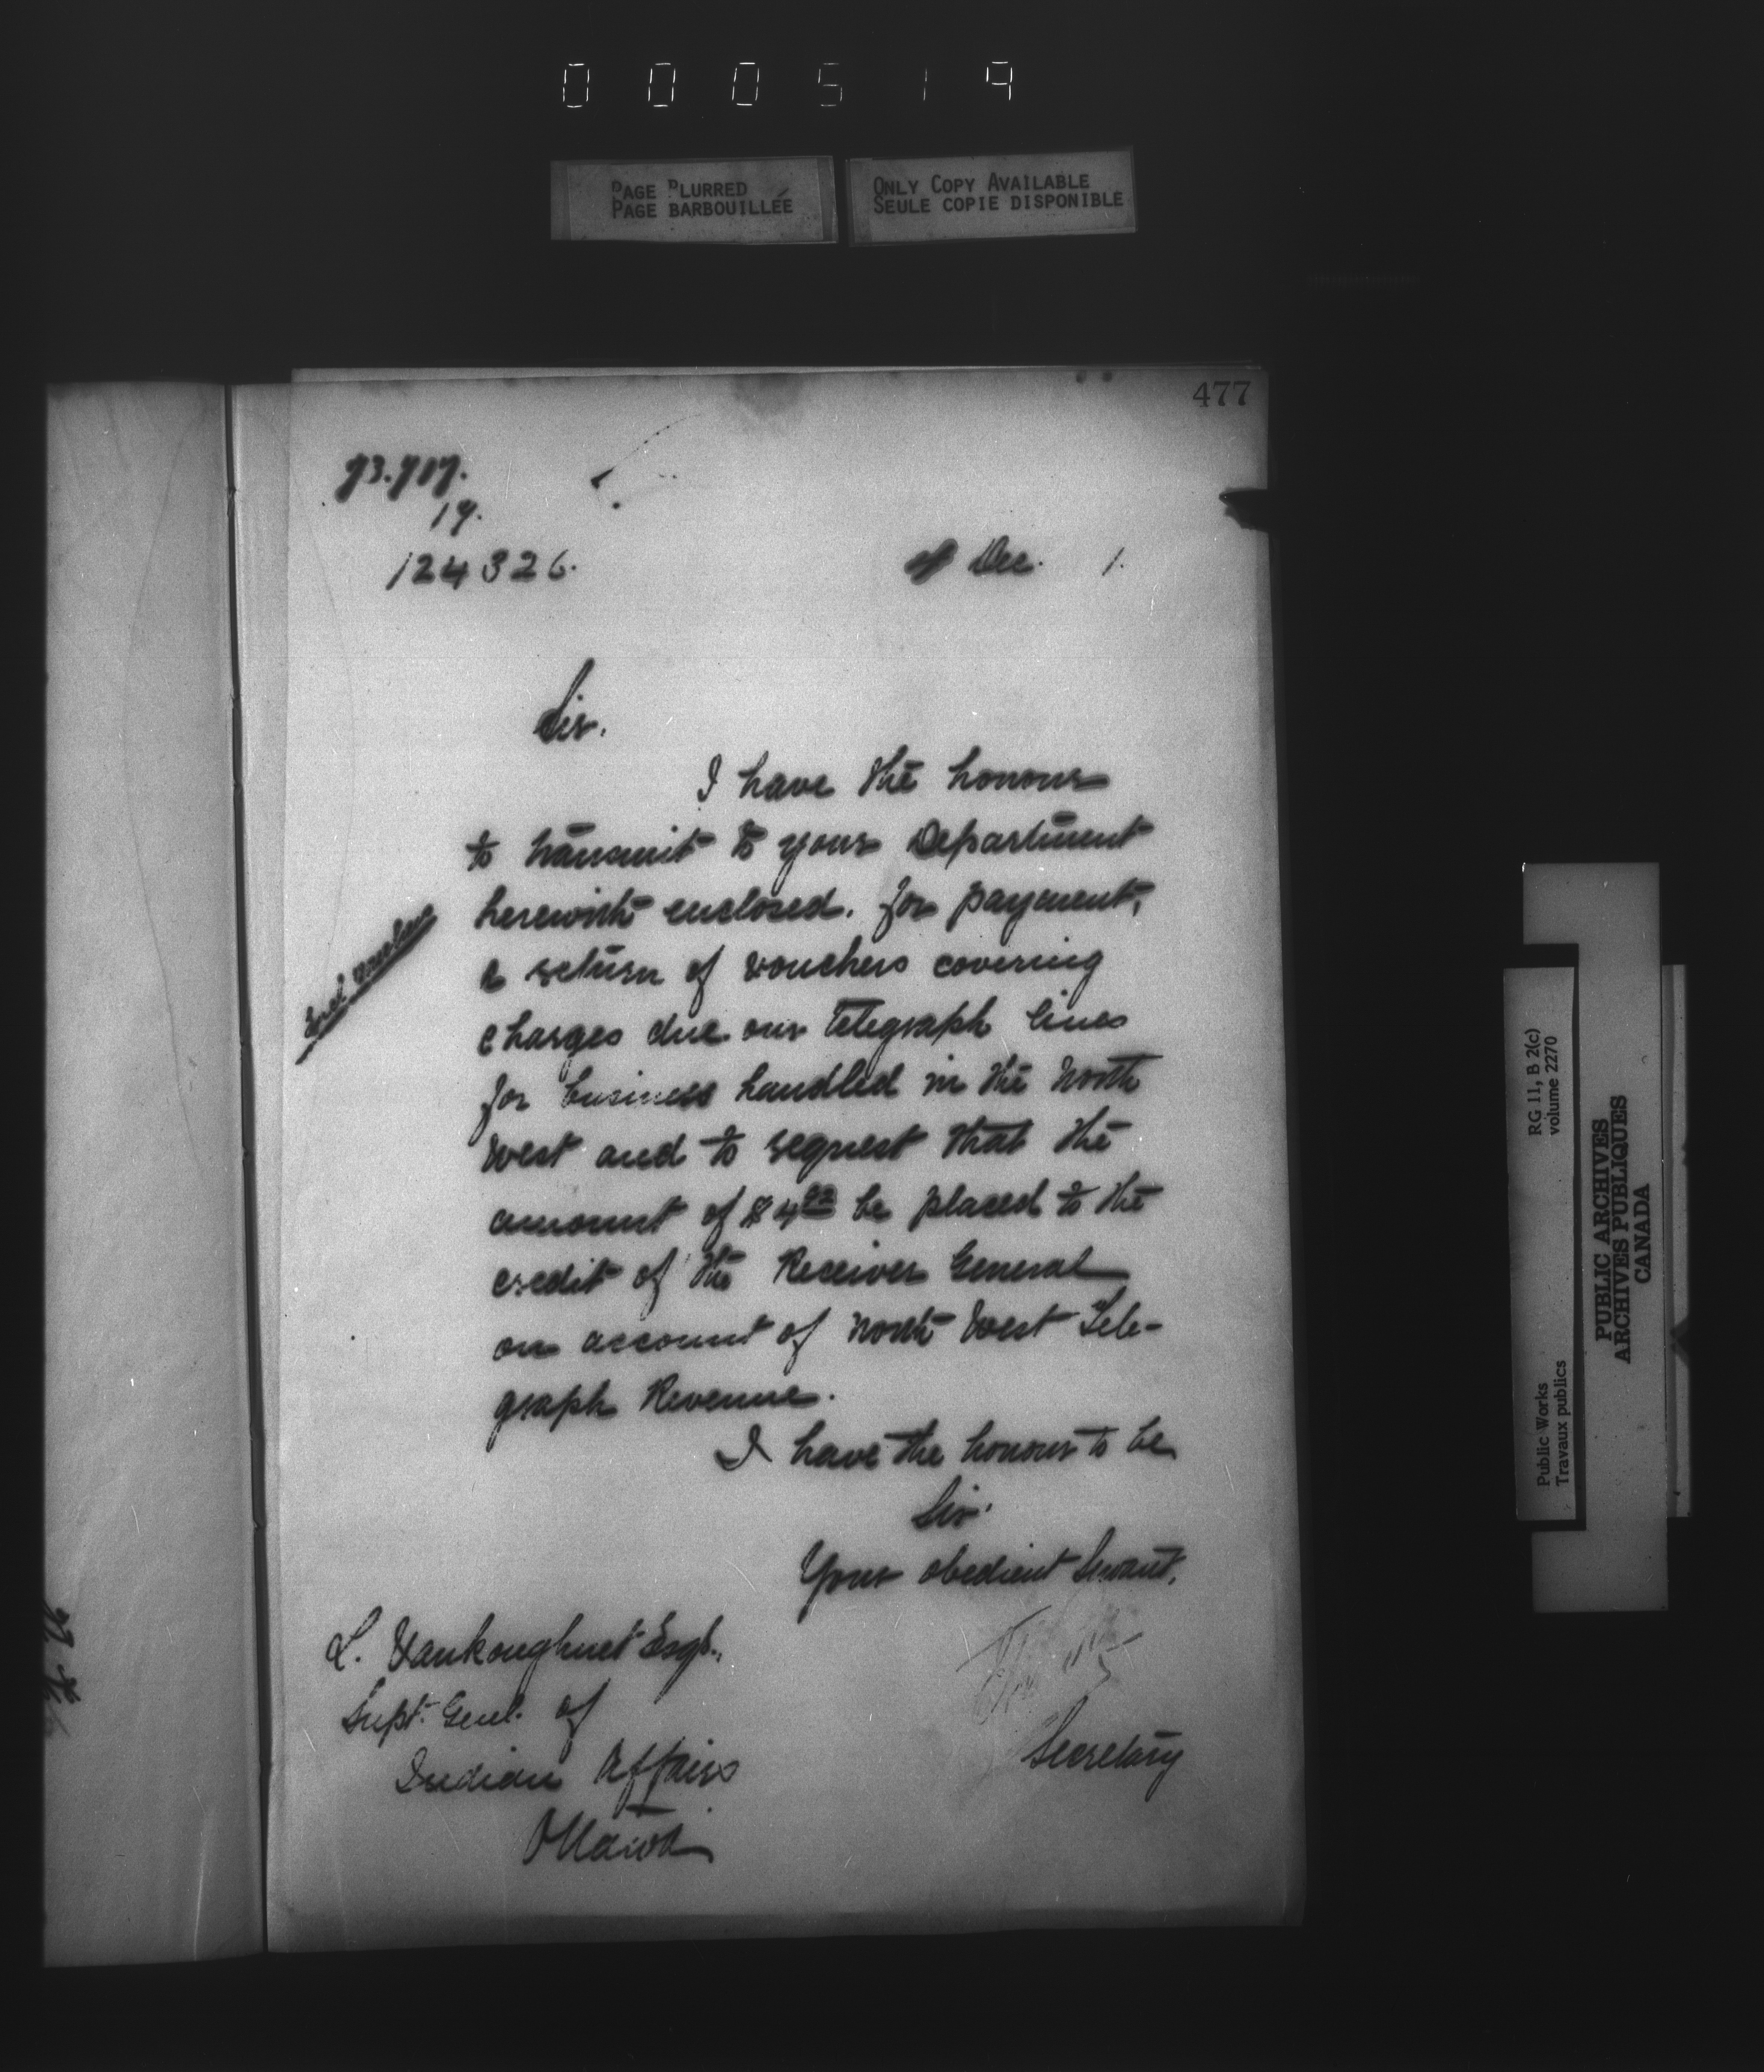 000519
PAGE BLURRED
PAGE BARBOUILLÉE
ONLY COPY AVAILABLE
SEULE COPIE DISPONIBLE
477
73.717.
19.
124326.
Dec. 1.
Sir.
I have the honour
to transmit to your Department
herewith enclosed. for payment,
a return of vouchers covering
charges due our Telegraph lines
for business handled in the North
West and to request that the
amount of $4 be placed to the
credit of the Receiver General
on account of North West Tele-
graph Revenue.
I have the honour to be
Sir.
Your obedient Servant,
L. Vankoughnet Esqr.,
Supt. Genl. of
Indian Affairs
Ottawa
Secretary
RG 11, B 2(c)
volume 2270
Public Works
Travaux publics
PUBLIC ARCHIVES
ARCHIVES PUBLIQUES
CANADA